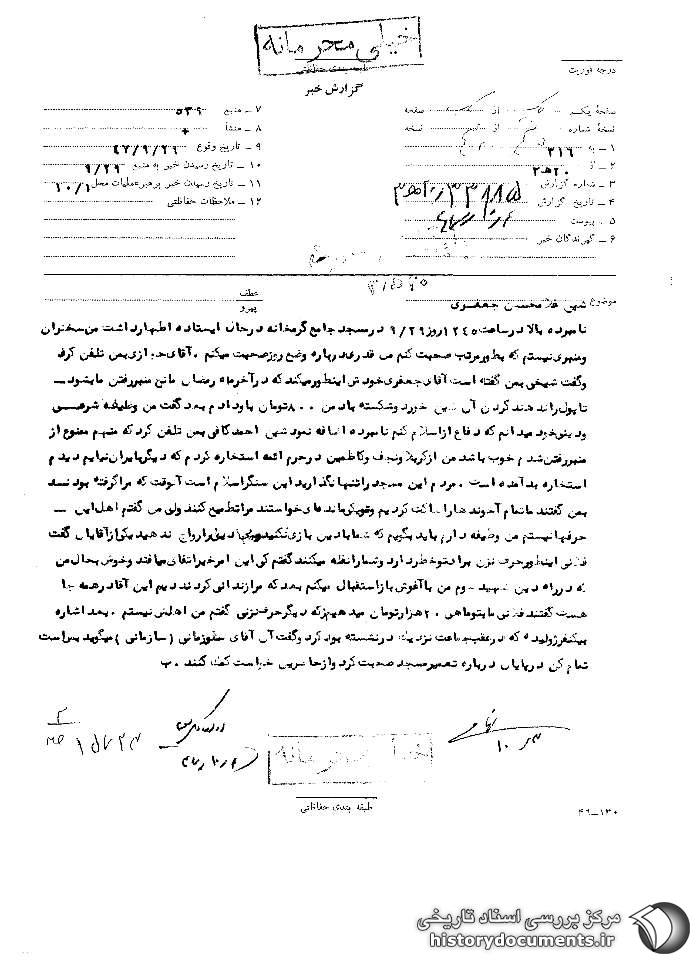 خیلی محرمانه
طبقه بندی حفاظتی
گزارش خبر
درجه فوریت
صفحهٔ یکم از صفحه
نسخهٔ شماره از نسخه
۱ ـ به ۲۱۶
۲ ـ از ۲۰ هـ ۳
۳ ـ شماره گزارش
۴ ـ تاریخ گزارش
۵ ـ پیوست
۶ ـ گیرندگان خبر
۷ ـ منبع ۵۳۹
۸ ـ منشأ
۹ ـ تاریخ وقوع ۴۷/۹/۲۹
۱۰ ـ تاریخ رسیدن خبر به منبع ۹/۲۹
۱۱ ـ تاریخ رسیدن خبر برهبرعملیات محل ۱۰/۱
۱۲ ـ ملاحظات حفاظتی
موضوع شیخ غلامحسین جعفری
عطف
پیرو
نامبرده بالا درساعت ۱۲۴۵ روز ۹/۲۹ درمسجد جامع گرمخانه درحال ایستاده اظهارداشت من سخنران
ومنبری نیستم که بطورمرتب صحبت کنم من قدری درباره وضع روزصحبت میکنم . آقای بمن تلفن کرد
وگفت شیخی بمن گفته است آقای جعفری خودش اینطورمیکند که درآخرماه رمضان مانع منبررفتن مابشود ـ
تا پول راند هند کردن آن شیخ خورد وشکسته باد من ۸۰۰ تومان باودادم بعد گفت من وظیفه شرعی
ودینی خود میدانم که دفاع ازاسلام کنم نامبرده اضافه نمود شیخ احمد کافی بمن تلفن کرد که منهم ممنوع از
منبررفتن شدم خوب باشد من ازکربلا ونجف وکاظمین درحرم ائمه استخاره کردم که دیگربایران نیایم دیدم
استخاره بد آمده است . مردم این مسجد راتنها نگذارید این سنگراسلام است آنوقت که مراگرفته بود ند
بمن گفتند ماتمام آخوند هارا ساکت کردیم وتویکی ماندهای خواستند مراتطمیع کنند ولی من گفتم اهل این ـ
حرفها نیستم من وظیفه دارم باید بگویم که شما بادین بازی نکنید رواج ند هید یکی ازآقایان گفت
فلانی اینطورحرف نزن برا یتوخطردارد وشمارانفله میکنند گفتم کی این امرخیراتفاق میافتد وخوش بحال من
که درراه دین شهید شوم من باآغوش بازاستقبال میکنم بعد که مرازندانی کردند دیم این آقادرهمه جا
هست گفتند فلانی مابتوماهی ۲۰ هزارتومان میدهیم که دیگرحرف نزنی گفتم من اهلش نیستم . بعد اشاره
بیکنفرژولیده که درعقب جماعت نزدیک درنشسته بود کرد وگفت آن آقای حقوزمانی (سازمانی) میگوید بس است
تمام کن درپایان درباره تعمیرمسجد صحبت کرد وازحاضرین خواست کمک کنند . ب
طبقه بندی حفاظتی
۴۶ـ۱۳۰
مرکز بررسی اسناد تاریخی
historydocuments.ir